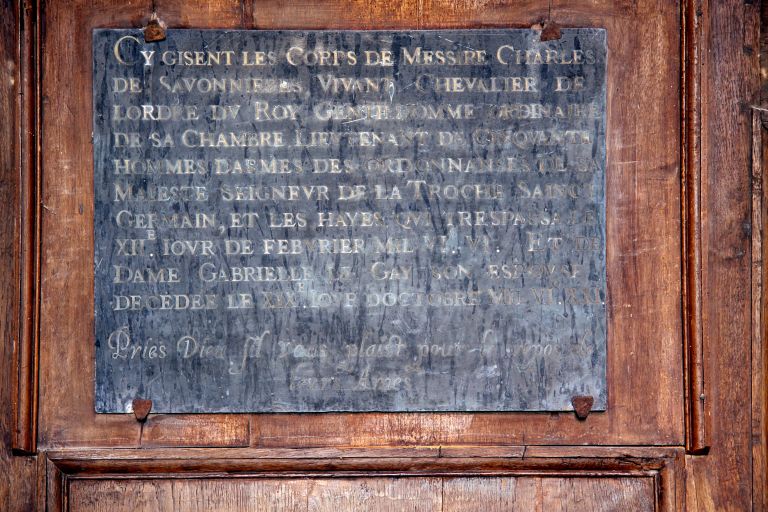 CY GISENT LES CORPS DE MESSIRE CHARLES
DE SAVONNIERES VIVANT CHEVALIER DE
LORDRE DV ROY GENTILHOMME ORDINAIRE
DE SA CHAMBRE LIEVTENANT DE CINQVANTE
HOMMES DARMES DES ORDONNANSES DE SA
MAIESTE SEIGNEVR DE LA TROCHE SAINCT
GERMAIN, ET LES HAYES QVI TRESPASSA LE
XIIᴱ. IOVR DE FEBVRIER MIL VIᶜ. VI. ET DE
DAME GABRIELLE LE GAY SON ESPOVSE
DECÉDÉE LE XIXᴱ. IOVR DOCTOBRE MIL VIᶜ XXI
Priés Dieu s'il vous plaist pour le repos de
leurs Ames